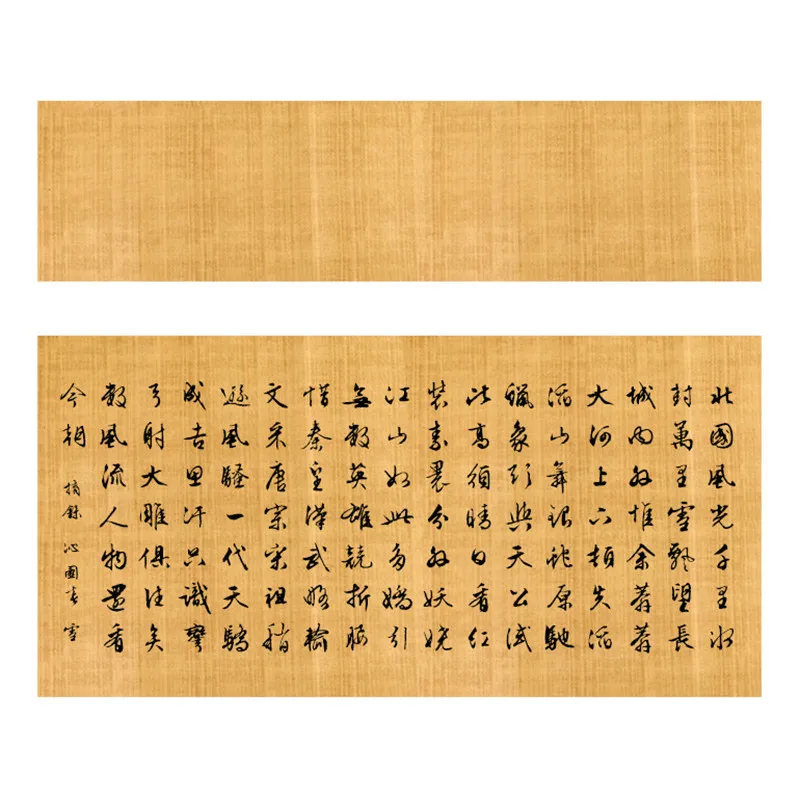 北國風光千里冰
封萬里雪飄望長
城内外惟余莽莽
大河上下頓失滔
滔山舞銀蛇原馳
蠟象欲與天公試
比高須晴日看紅
裝素裹分外妖嬈
江山如此多嬌引
無數英雄競折腰
惜秦皇漢武略輸
文采唐宗宋祖稍
遜風騷一代天驕
成吉思汗只識彎
弓射大雕俱往矣
數風流人物還看
今朝 摘錄 沁園春 雪